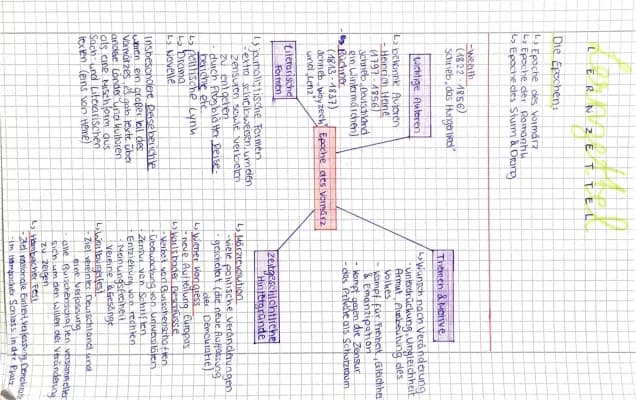 Lernzettel
LERNZETTEL
Die Epochen:
↳ Epoche des Vormärz
↳ Epoche der Romantik
↳ Epoche des Sturm & Drang
Epoche des Vormärz
Wichtige Autoren
↳ bekannte Autoren
- Heinrich Heine
(1797 - 1856)
schrieb „Deutschland
ein Wintermärchen“
- Büchner
(1813 - 1837)
schrieb „Woyzeck“
und „Lenz“
- Weerth
(1822 - 1856)
schrieb „das Hungerlied“
Themen & Motive
↳ Wunsch nach Veränderung
- Unterdrückung, Ungleichheit
Armut, Ausbeutung des
Volkes
- Kampf für Freiheit, Gleichheit
& Emanzipation
- Kampf gegen die Zensur
- das Private als Schutzraum
Literarische
Formen
↳ journalistische Formen
um den
Zensuren sowie Verboten
zu entgehen
- auch Flugblätter, Reise-
berichte etc.
↳ politische Lyrik
↳ Drama
↳ Novelle
Insbesondere Reiseberichte
waren ein großer Teil des
Vormärzes, es gab Texte über
andere Länder und Kulturen
als eine Mischform aus
Sach- und Literarischen
Texten (uns von Heine)
zeitgeschichtliche
Hintergründe
↳ Märzrevolution
- viele politische Veränderungen
- gescheitert (die neue Auffassung
der Demokratie)
↳ Wiener Kongress
- neue Aufteilung Europas
↳ Karlsbader Beschlüsse
- Verbot von Burschenschaften
Überwachung von Universitäten
Zensur von Schriften
- Entziehung von rechten
- Meinungsfreiheit
Vereine & Gesänge
↳ Wartburgfest
- Ziel vereintes Deutschland und
eine Verfassung
alle Burschenschaften versammelten
sich um den Willen der Veränderung
zu zeigen
↳ Hambacher Fest
- Ziel nationale Einheit, Verfassung, Demokratie
- im Hambacher Schloss in der Pfalz